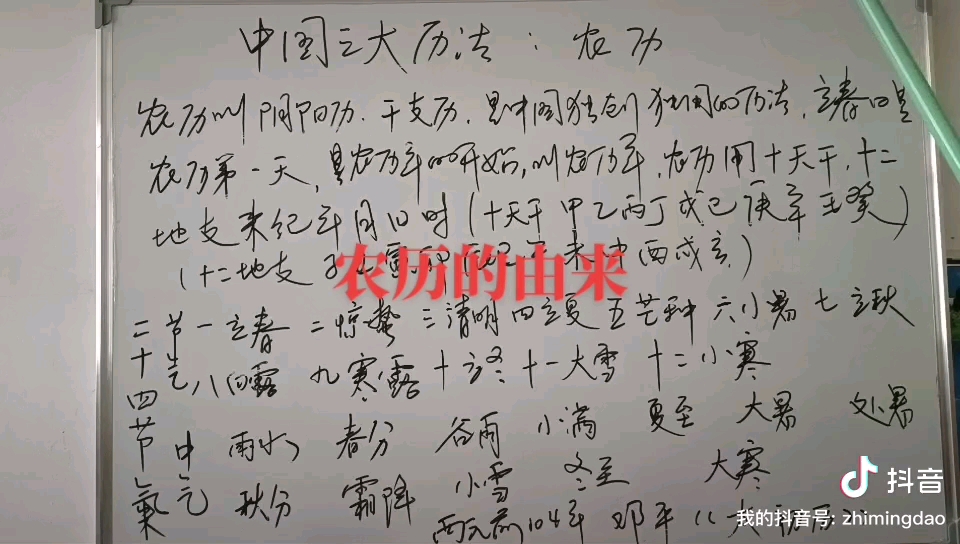 中国三大历法：农历
农历叫阴阳历、干支历,是中国独创独用的历法,立春日是
农历第一天,是农历年的开始,叫农历年,农历用十天干,十二
地支来纪年月日时(十天干 甲乙丙丁戊己庚辛壬癸)
(十二地支 子 未申酉戌亥)
农历的由来
二十四节氣
节气 一立春 二惊蛰 三清明 四立夏 五芒种 六小暑 七立秋
八白露 九寒露 十立冬 十一大雪 十二小寒
中气 雨水 春分 谷雨 小满 夏至 大暑 处暑
秋分 霜降 小雪 冬至 大寒
西元前104年 邓平
抖音
我的抖音号: zhimingdao